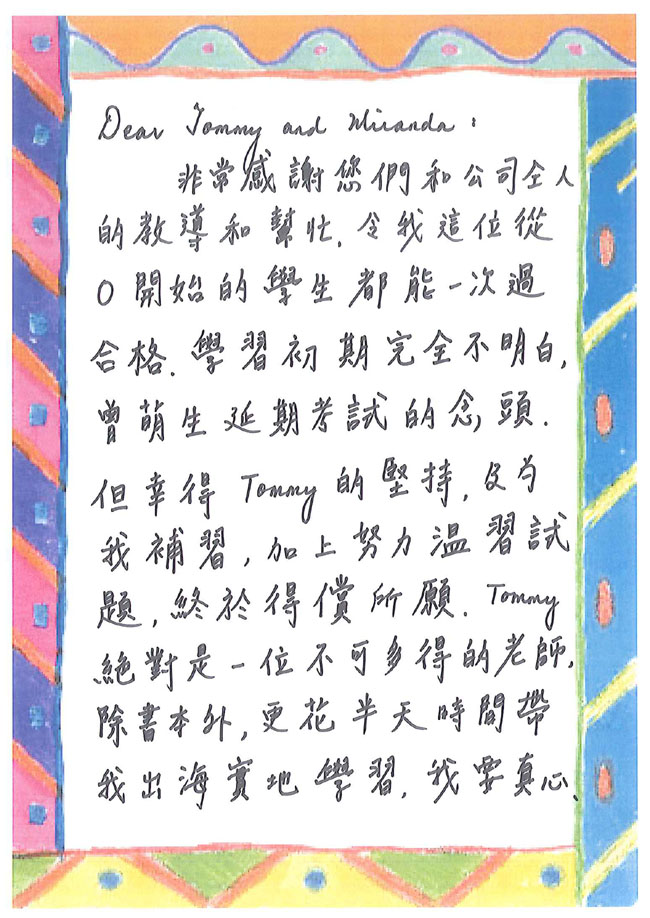 Dear Tommy and Miranda :
非常感謝您們和公司仝人
的教導和幫忙, 令我這位從
0 開始的學生都能一次過
合格. 學習初期完全不明白,
曾萌生延期考試的念頭.
但幸得 Tommy 的堅持, 及为
我補習, 加上努力溫習試
題, 終於得償所願. Tommy
絕對是一位不可多得的老師,
除書本外, 更花半天時間帶
我出海實地學習. 我要真心、